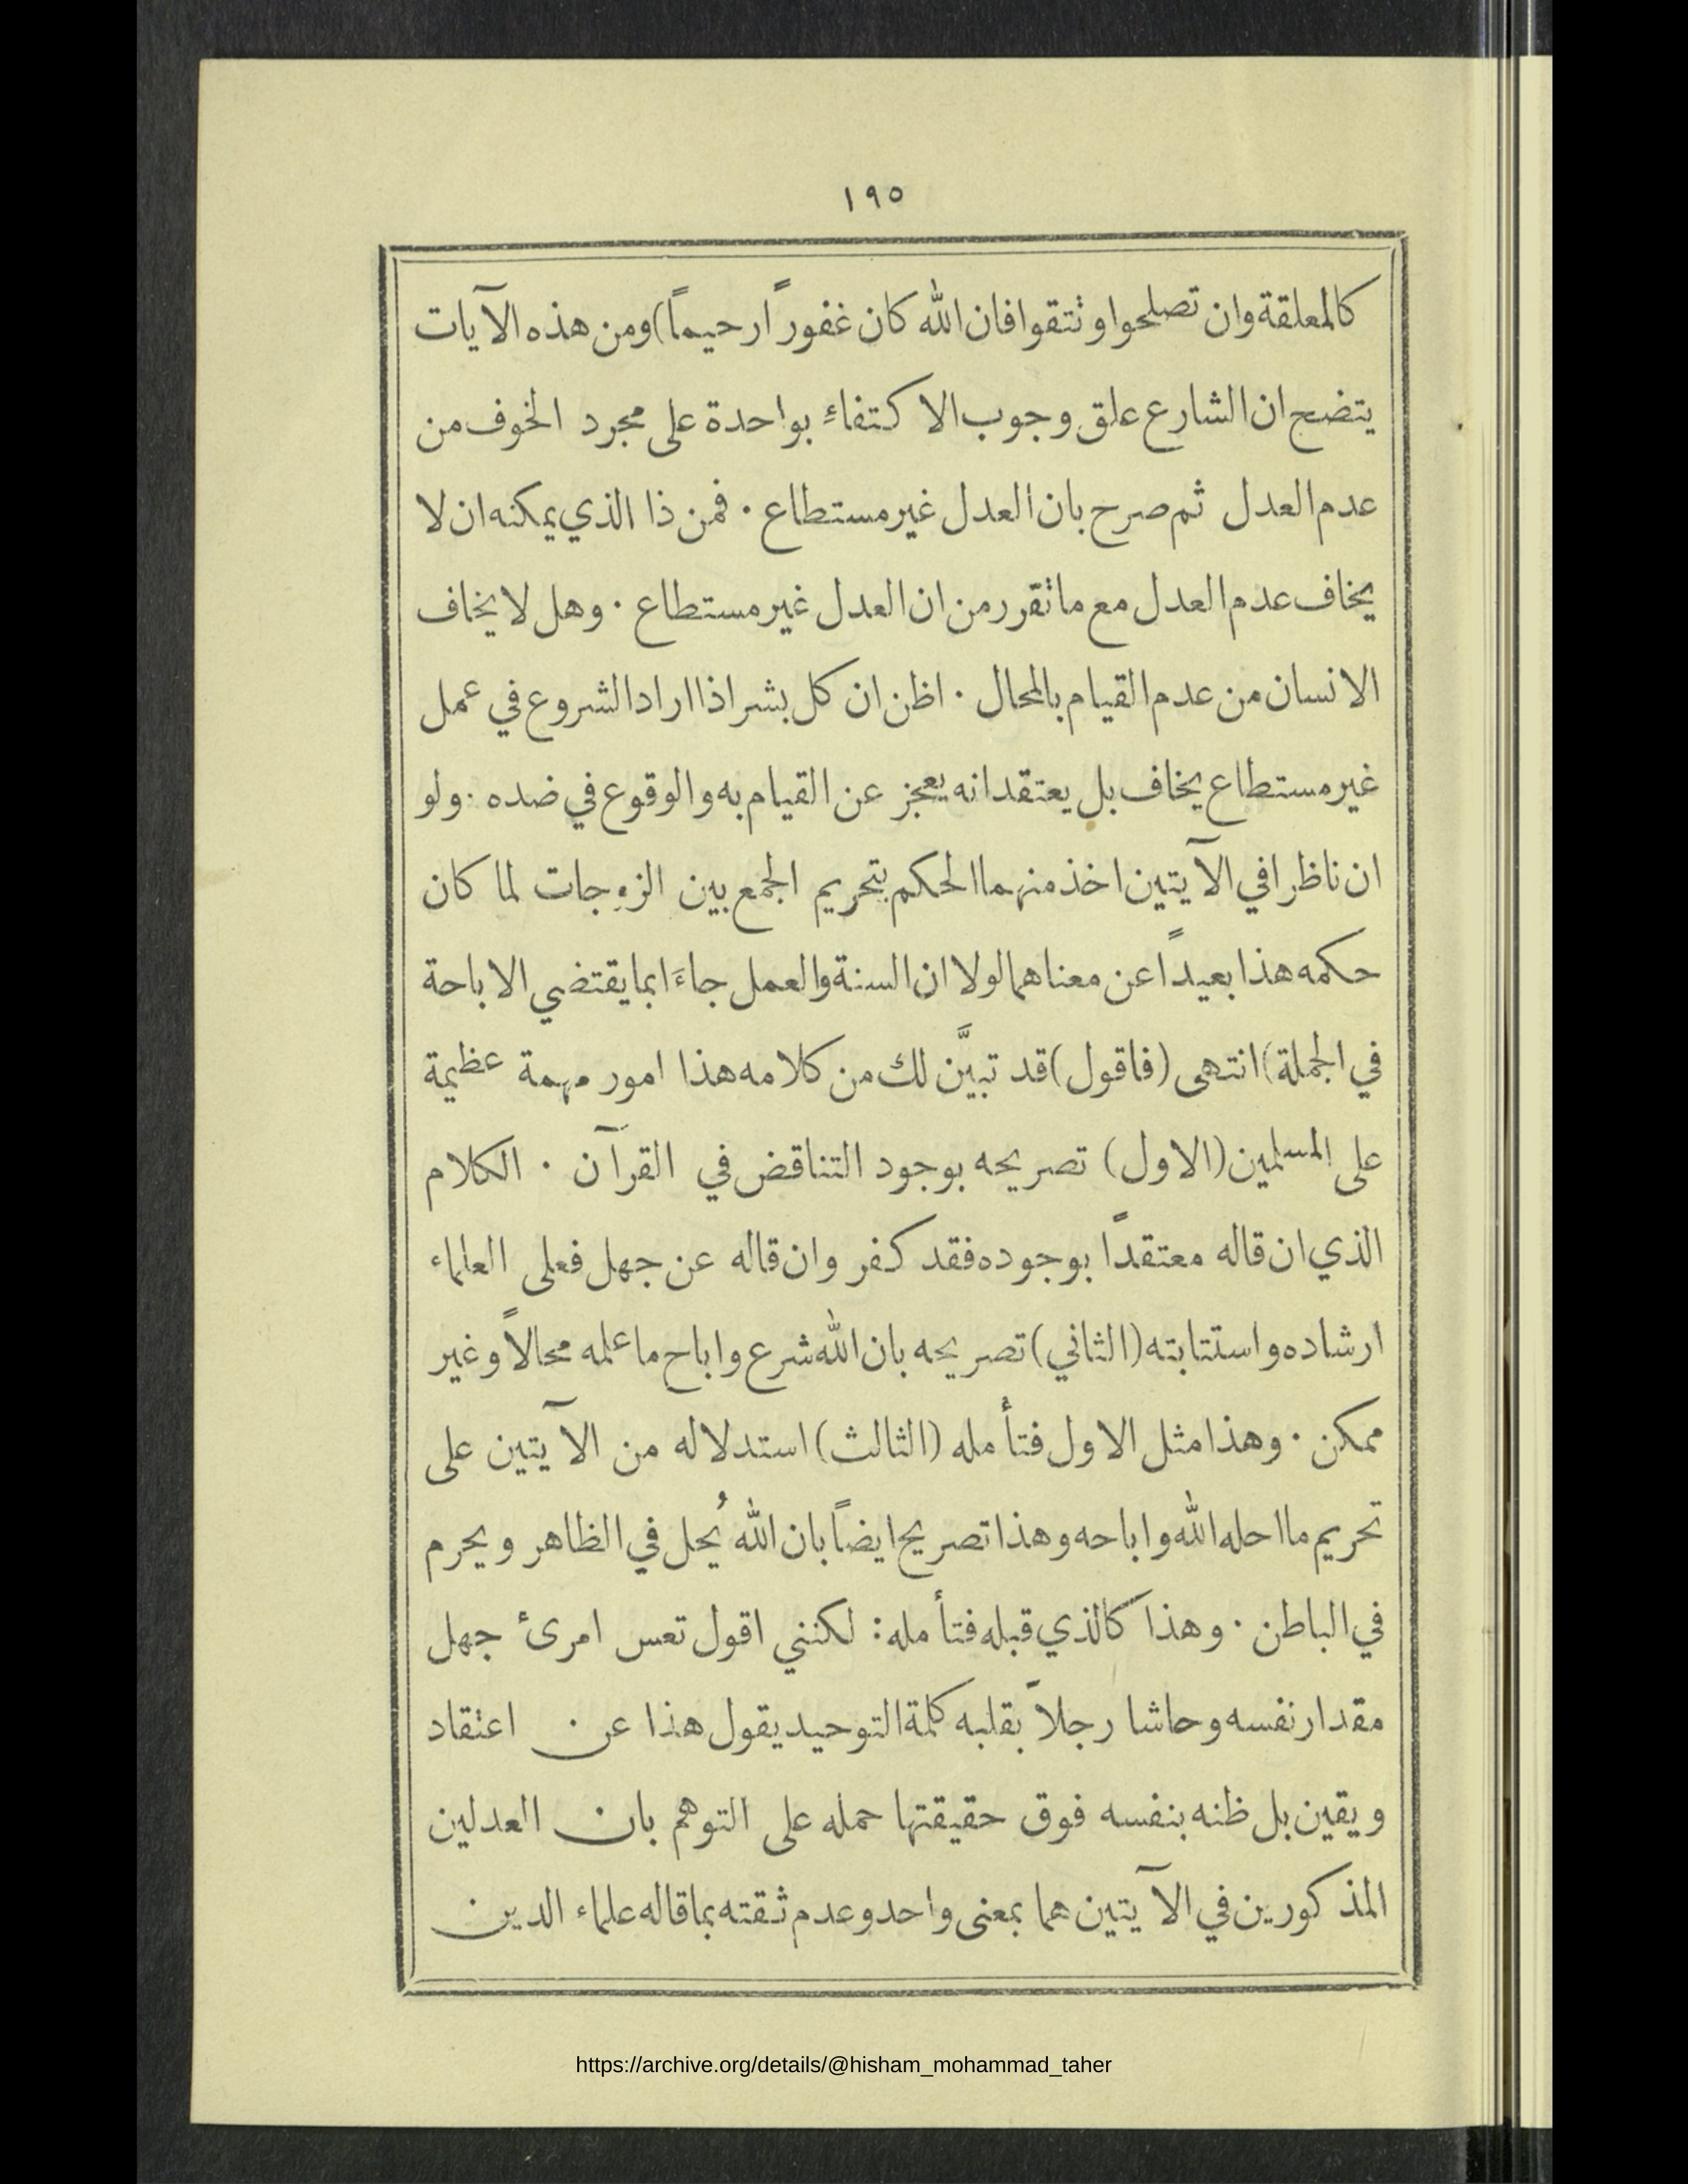 ١٩٥
كالمعلقة وان تصلحوا وتتقوا فان الله كان غفوراً رحيماً) ومن هذه الآيات
يتضح ان الشارع علق وجوب الاكتفاءِ بواحدة على مجرد الخوف من
عدم العدل ثم صرح بان العدل غير مستطاع · فمن ذا الذي يمكنه ان لا
يخاف عدم العدل مع ما تقرر من ان العدل غير مستطاع · وهل لا يخاف
الانسان من عدم القيام بالمحال · اظن ان كل بشر اذا اراد الشروع في عمل
غير مستطاع يخاف بل يعتقد انه يعجز عن القيام به والوقوع في ضده · ولو
ان ناظرا في الآيتين اخذ منهما الحكم بتحريم الجمع بين الزوجات لما كان
حكمه هذا بعيداً عن معناهما لولا ان السنة والعمل جاءَا بما يقتضي الاباحة
في الجملة) انتهى (فاقول) قد تبيَّن لك من كلامه هذا امور مهمة عظيمة
على المسلمين (الاول) تصريحه بوجود التناقض في القرآن · الكلام
الذي ان قاله معتقداً بوجوده فقد كفر وان قاله عن جهل فعلى العلماء
ارشاده واستتابته (الثاني) تصريحه بان الله شرع واباح ما علمه محالاً وغير
ممكن · وهذا مثل الاول فتأمله (الثالث) استدلاله من الآيتين على
تحريم ما احله الله واباحه وهذا تصريح ايضاً بان الله يُحل في الظاهر ويحرم
في الباطن · وهذا كالذي قبله فتأمله : لكنني اقول تعس امرئ جهل
مقدار نفسه وحاشا رجلاً بقلبه كلمة التوحيد يقول هذا عن اعتقاد
ويقين بل ظنه بنفسه فوق حقيقتها حمله على التوهم بان العدلين
المذكورين في الآيتين هما بمعنى واحد وعدم ثقته بما قاله علماء الدين
https://archive.org/details/@hisham_mohammad_taher